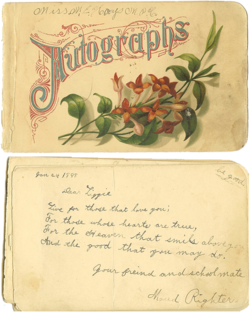 Autographs
Jan 24 1887
Dear Lizzie
Live for those that love you;
For those whose hearts are true,
For the Heaven that smiles above you
And the good that you may do.
Your freind and schoolmate
Righter.